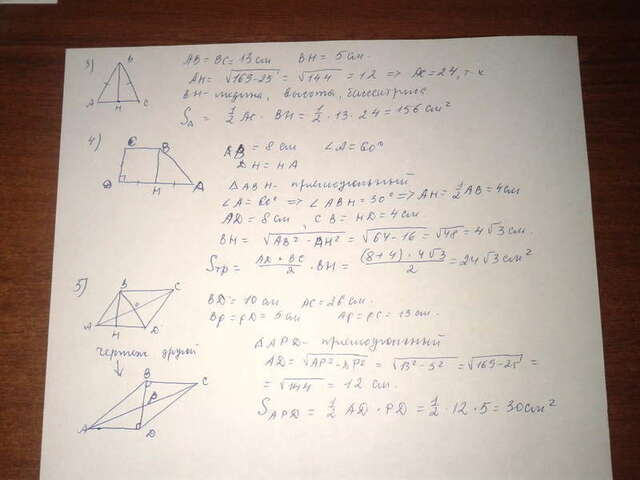 3) AB = BC = 13 см BH = 5 см.
AH = √169-25 = √144 = 12 => AC = 24, т.к
BH - медиана, высота, биссектриса
S△ = 1/2 AC · BH = 1/2 · 13 · 24 = 156 см²
B
A H C
4) AB = 8 см ∠A = 60°
DH = HA
△ABH - прямоугольный
∠A = 60° => ∠ABH = 30° => AH = 1/2 AB = 4 см
AD = 8 см CB = HD = 4 см.
BH = √AB² - AH² = √64 - 16 = √48 = 4√3 см.
Sтр = AD + BC / 2 · BH = (8+4) · 4√3 / 2 = 24√3 см²
C B
D H A
5) BD = 10 см AC = 26 см.
BP = PD = 5 см AP = PC = 13 см.
B C
A H D
чертеж другой
△APD - прямоугольный
AD = √AP² - DP² = √13² - 5² = √169 - 25 =
= √144 = 12 см.
S APD = 1/2 AD · PD = 1/2 · 12 · 5 = 30 см²
B C
P
A D